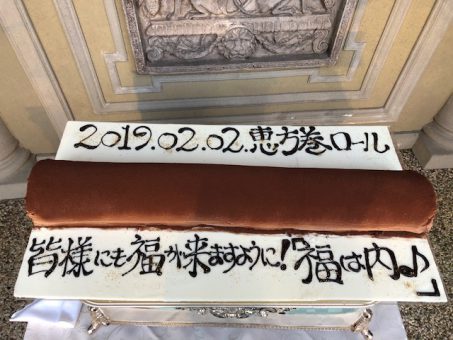 2019.02.02.恵方巻ロール
皆様にも福が来ますように!『福は内♪』